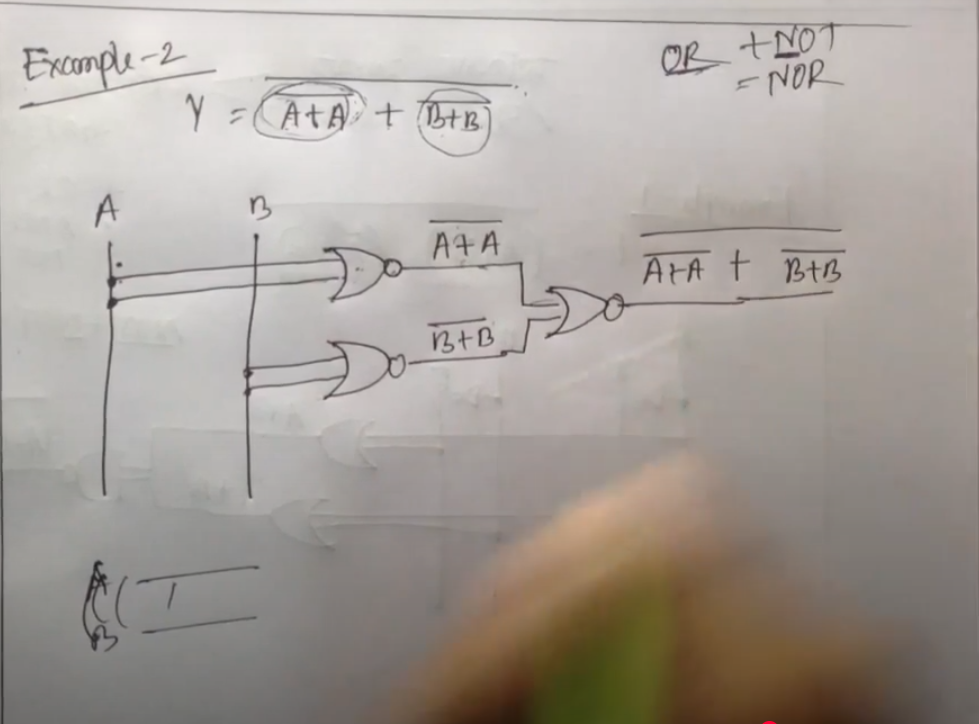 Example-2
OR + NOT
= NOR
Y = \overline{\overline{A+A} + \overline{B+B}}
A B
\overline{A+A}
\overline{B+B}
\overline{\overline{A+A} + \overline{B+B}}
A
B